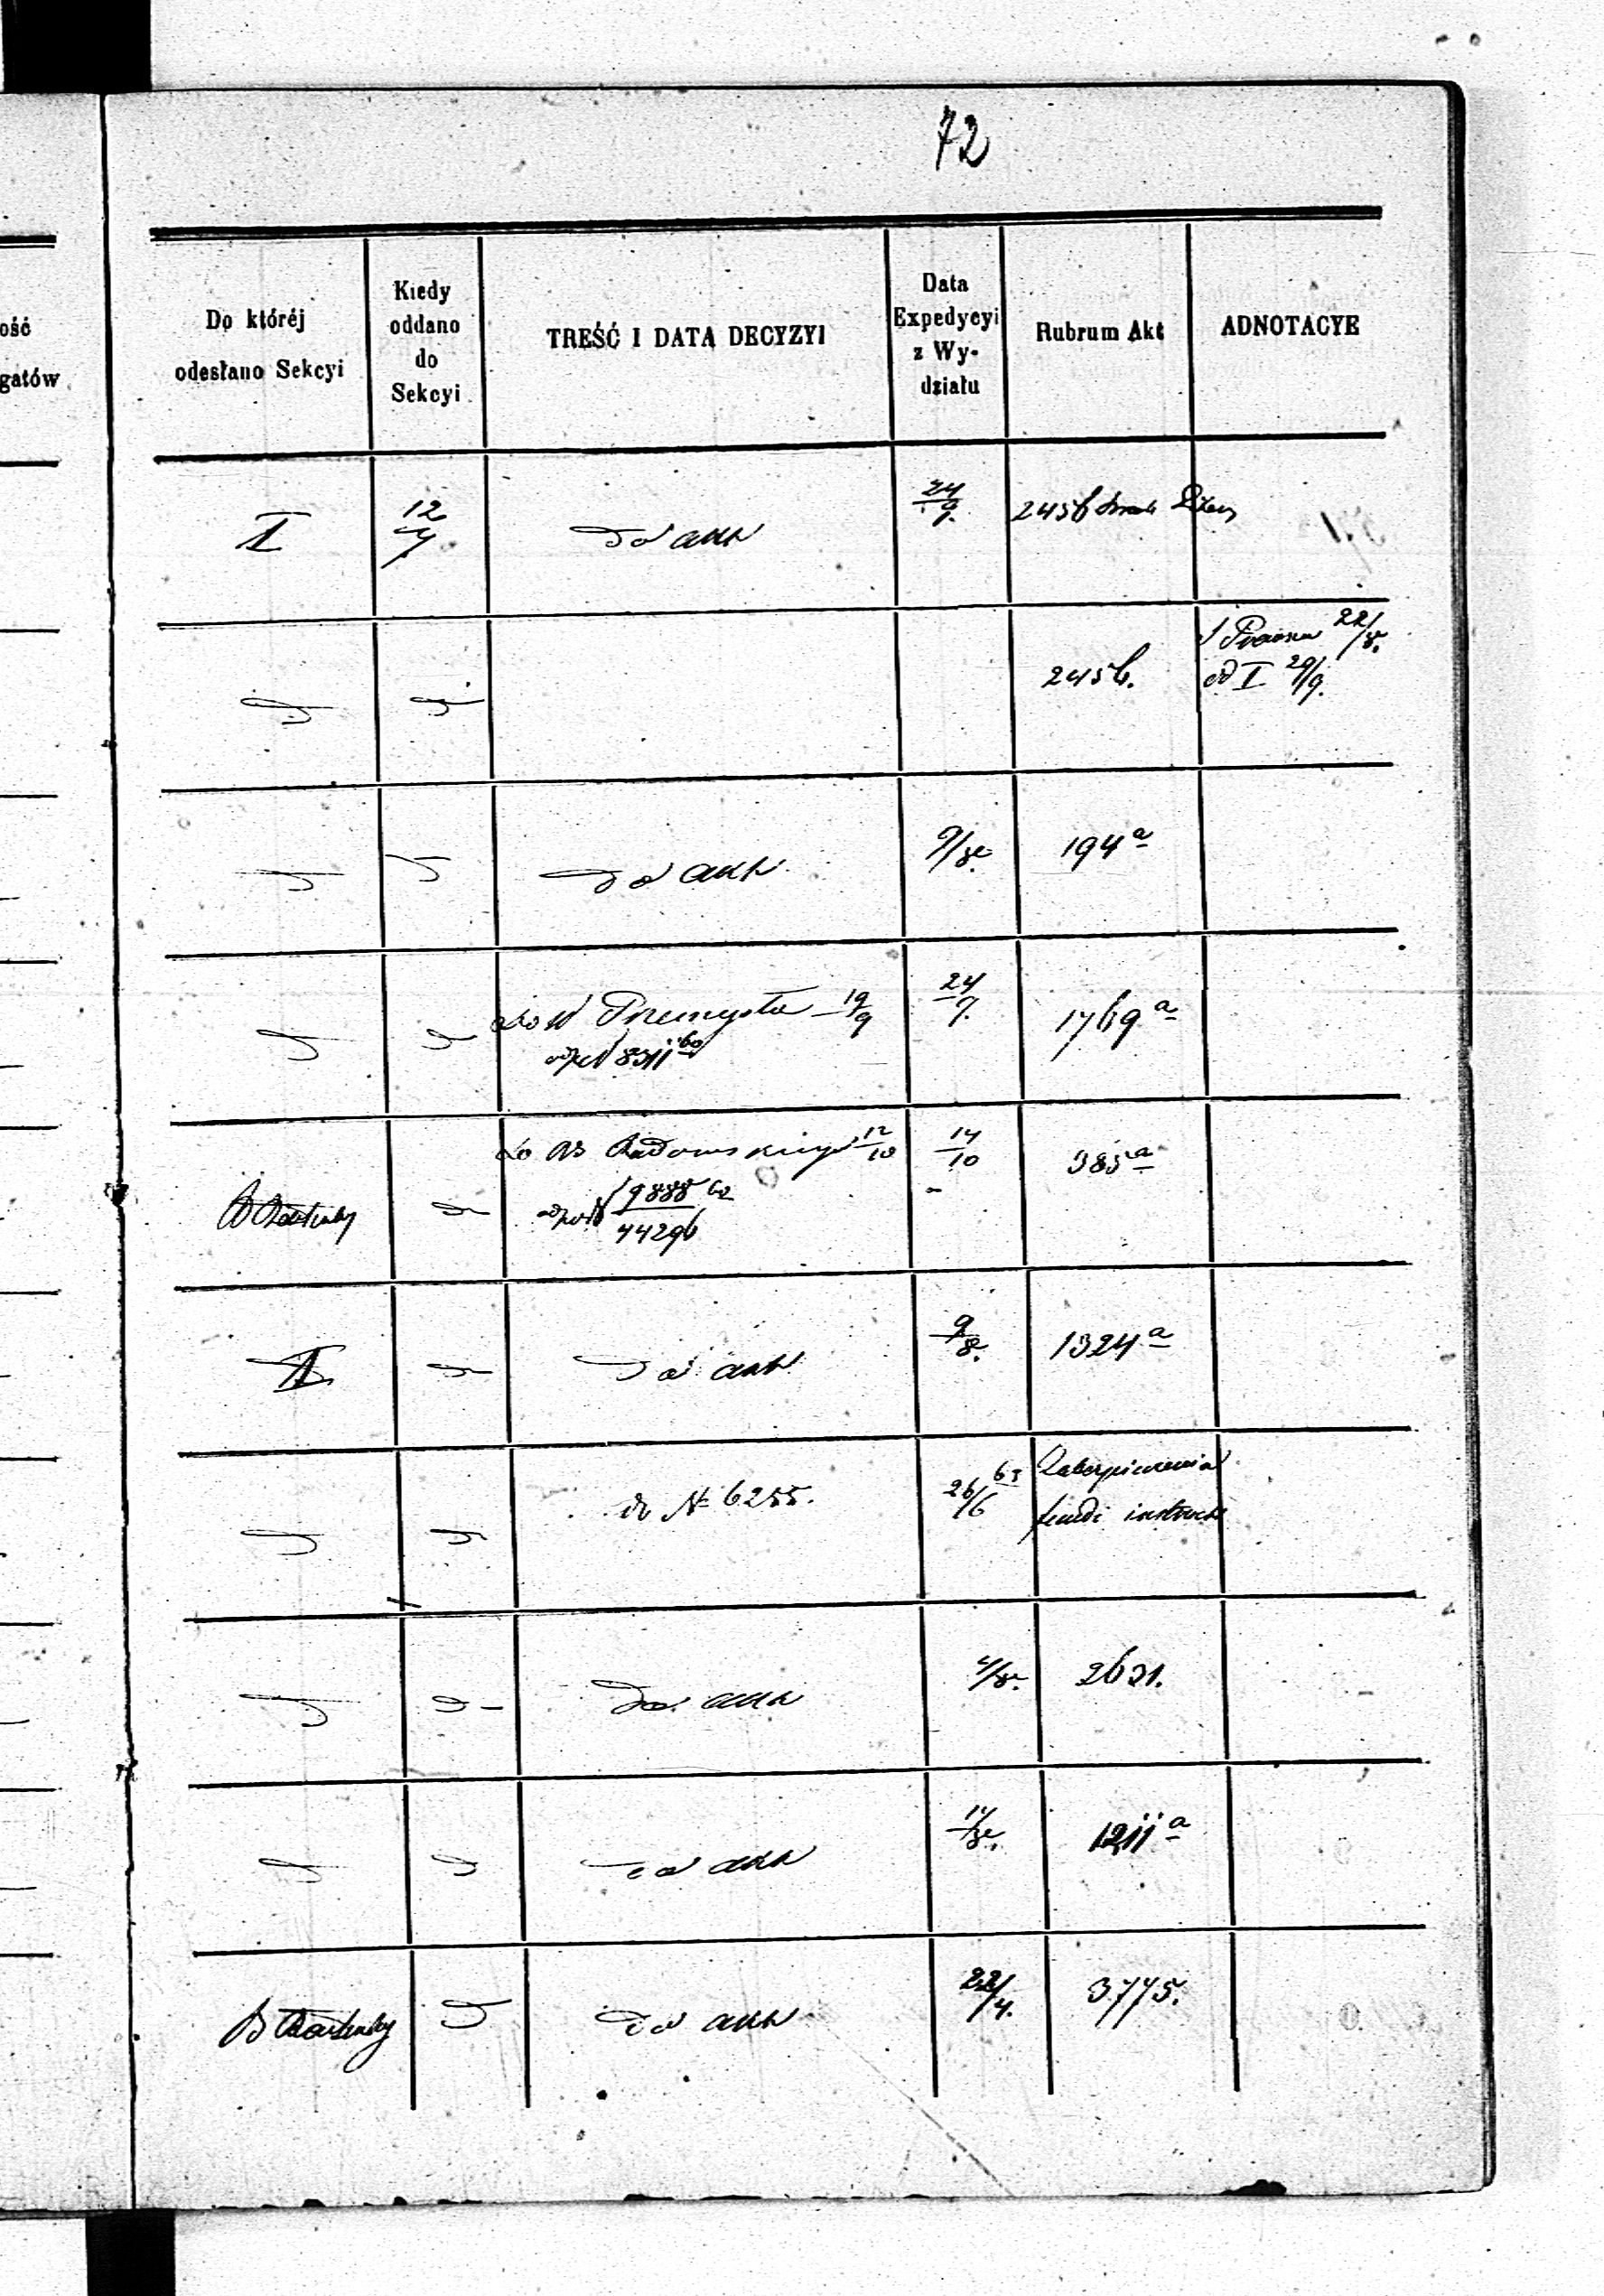 72
ość
gatów
Do któréj
odesłano Sekcyi
Kiedy
oddano
do
Sekcyi
TREŚĆ I DATA DECYZYI
Data
Expedycyi
z Wy-
działu
Rubrum Akt
ADNOTACYE
I 12/7 do akt 24/9. 2456
2456. 22/8.
od I 29/9.
do akt 9/8. 194 a
do W Przemysła 19/9 24/9. 1769 a
odp N 8311 60
do Radomskiego 12/10 14/10 385 a
9888 60
44296
I do akt 9/8. 1324 a
do № 6255. 26/6 63 Zabezpieczenia
fundi instructi
do akt 4/8. 2631.
do akt 11/8. 1211 a
do akt 22/4. 3775.